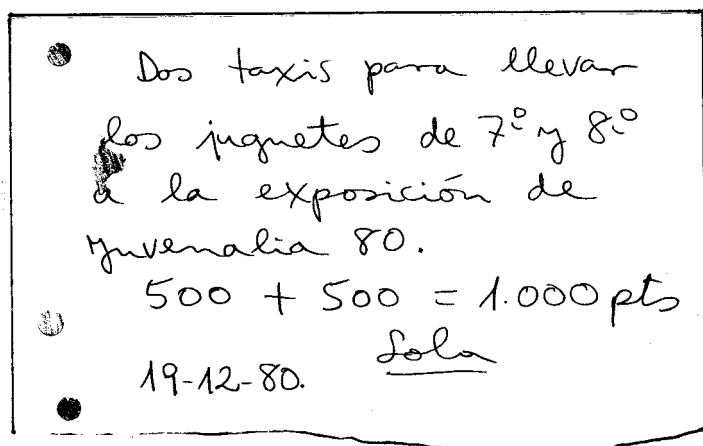 Dos taxis para llevar
los juguetes de 7º y 8º
a la exposición de
Juvenalia 80.
500 + 500 = 1.000 pts
Lola
19-12-80.